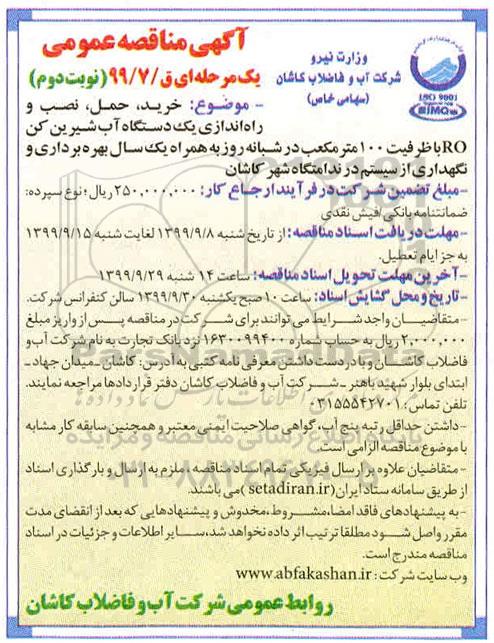 آگهی مناقصه عمومی
یک مرحله‌ای ق/۹۹/۷ (نوبت دوم)
وزارت نیرو
شرکت آب و فاضلاب کاشان
(سهامی خاص)
ISO 9001
- موضوع: خرید، حمل، نصب و
راه‌اندازی یک دستگاه آب شیرین کن
RO با ظرفیت ۱۰۰ متر مکعب در شبانه روز به همراه یک سال بهره برداری و
نگهداری از سیستم در ندامتگاه شهر کاشان
- مبلغ تضمین شرکت در فرآیند ارجاع کار: ۲۵۰,۰۰۰,۰۰۰ ریال؛ نوع سپرده:
ضمانتنامه بانکی/فیش نقدی
- مهلت دریافت اسناد مناقصه: از تاریخ شنبه ۱۳۹۹/۹/۸ لغایت شنبه ۱۳۹۹/۹/۱۵
به جز ایام تعطیل.
- آخرین مهلت تحویل اسناد مناقصه: ساعت ۱۴ شنبه ۱۳۹۹/۹/۲۹
- تاریخ و محل گشایش اسناد: ساعت ۱۰ صبح یکشنبه ۱۳۹۹/۹/۳۰ سالن کنفرانس شرکت.
- متقاضیان واجد شرایط می توانند برای شرکت در مناقصه پس از واریز مبلغ
۲,۰۰۰,۰۰۰ ریال به حساب شماره ۱۶۳۰۰۹۹۴۰۰ نزد بانک تجارت به نام شرکت آب و
فاضلاب کاشان و با در دست داشتن معرفی نامه کتبی به آدرس: کاشان - میدان جهاد -
ابتدای بلوار شهید باهنر - شرکت آب و فاضلاب کاشان دفتر قراردادها مراجعه نمایند.
تلفن تماس: ۰۳۱۵۵۵۴۲۷۰۱
- داشتن حداقل رتبه پنج آب، گواهی صلاحیت ایمنی معتبر و همچنین سابقه کار مشابه
با موضوع مناقصه الزامی است.
- متقاضیان علاوه بر ارسال فیزیکی تمام اسناد مناقصه، ملزم به ارسال و بارگذاری اسناد
از طریق سامانه ستاد ایران (setadiran.ir) می باشند.
- به پیشنهادهای فاقد امضا، مشروط، مخدوش و پیشنهادهایی که بعد از انقضای مدت
مقرر واصل شود مطلقا ترتیب اثر داده نخواهد شد، سایر اطلاعات و جزئیات در اسناد
مناقصه مندرج است.
وب سایت شرکت: www.abfakashan.ir
روابط عمومی شرکت آب و فاضلاب کاشان